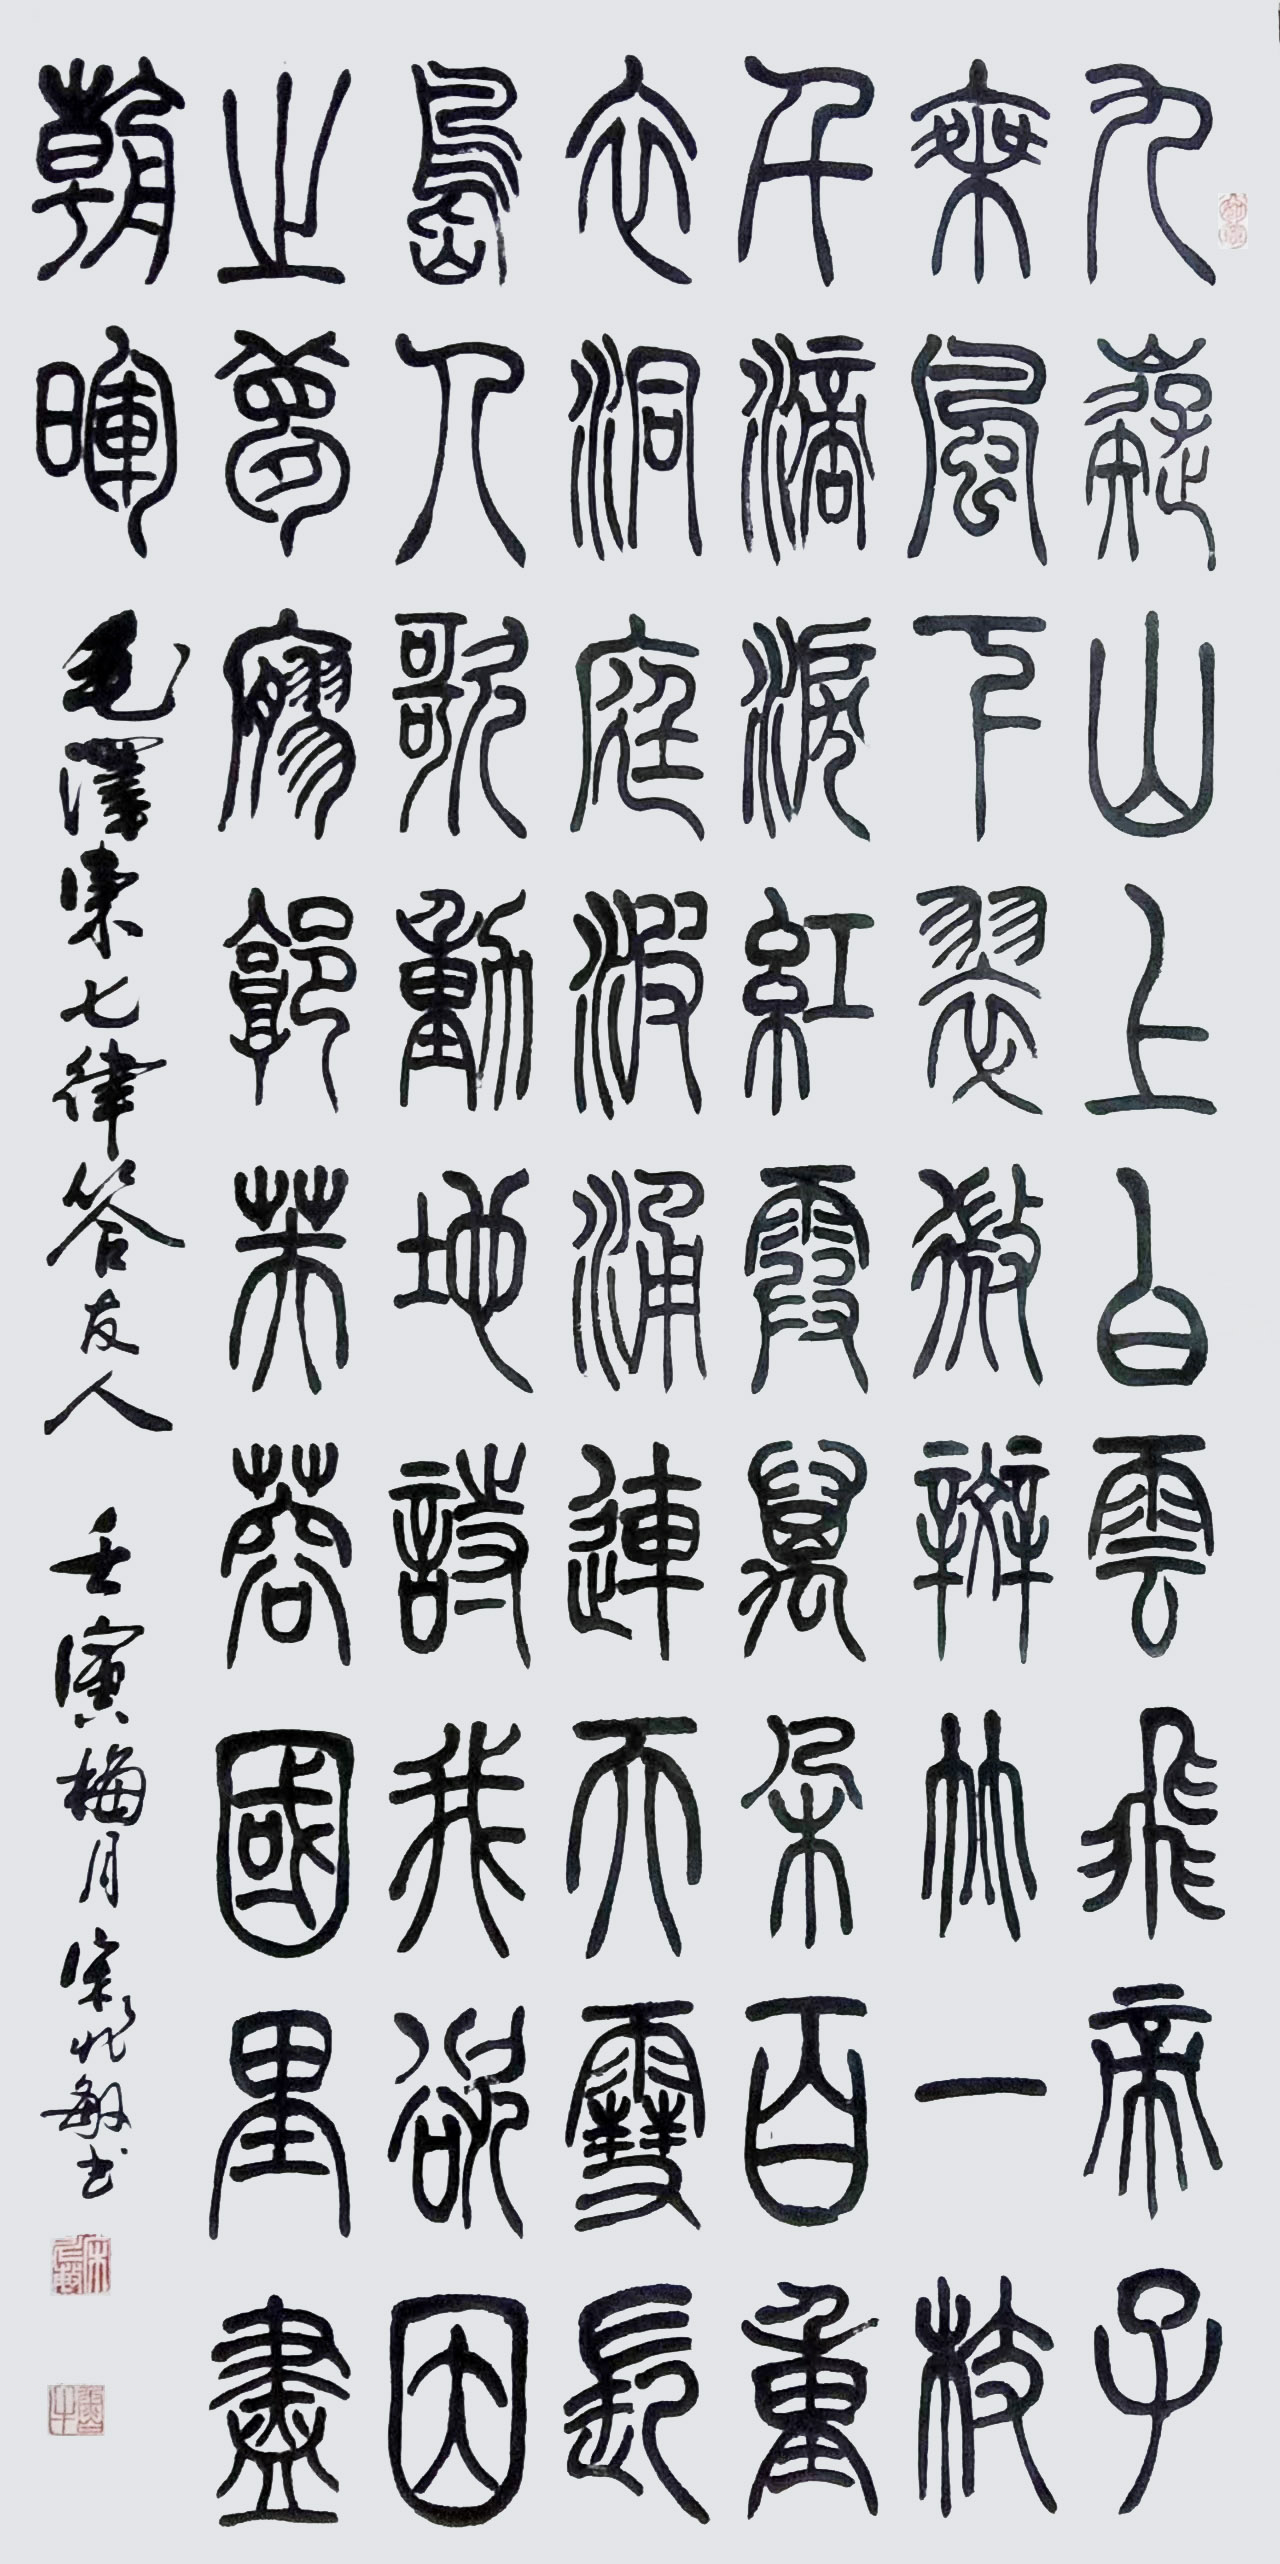 九嶷山上白雲飛帝子
乘風下翠微斑竹一枝
千滴淚紅霞萬朵百重
衣洞庭波涌連天雪長
島人歌動地詩我欲因
之夢寥廓芙蓉國里盡
朝暉 毛澤東七律答友人 壬寅梅月宋兆敏书